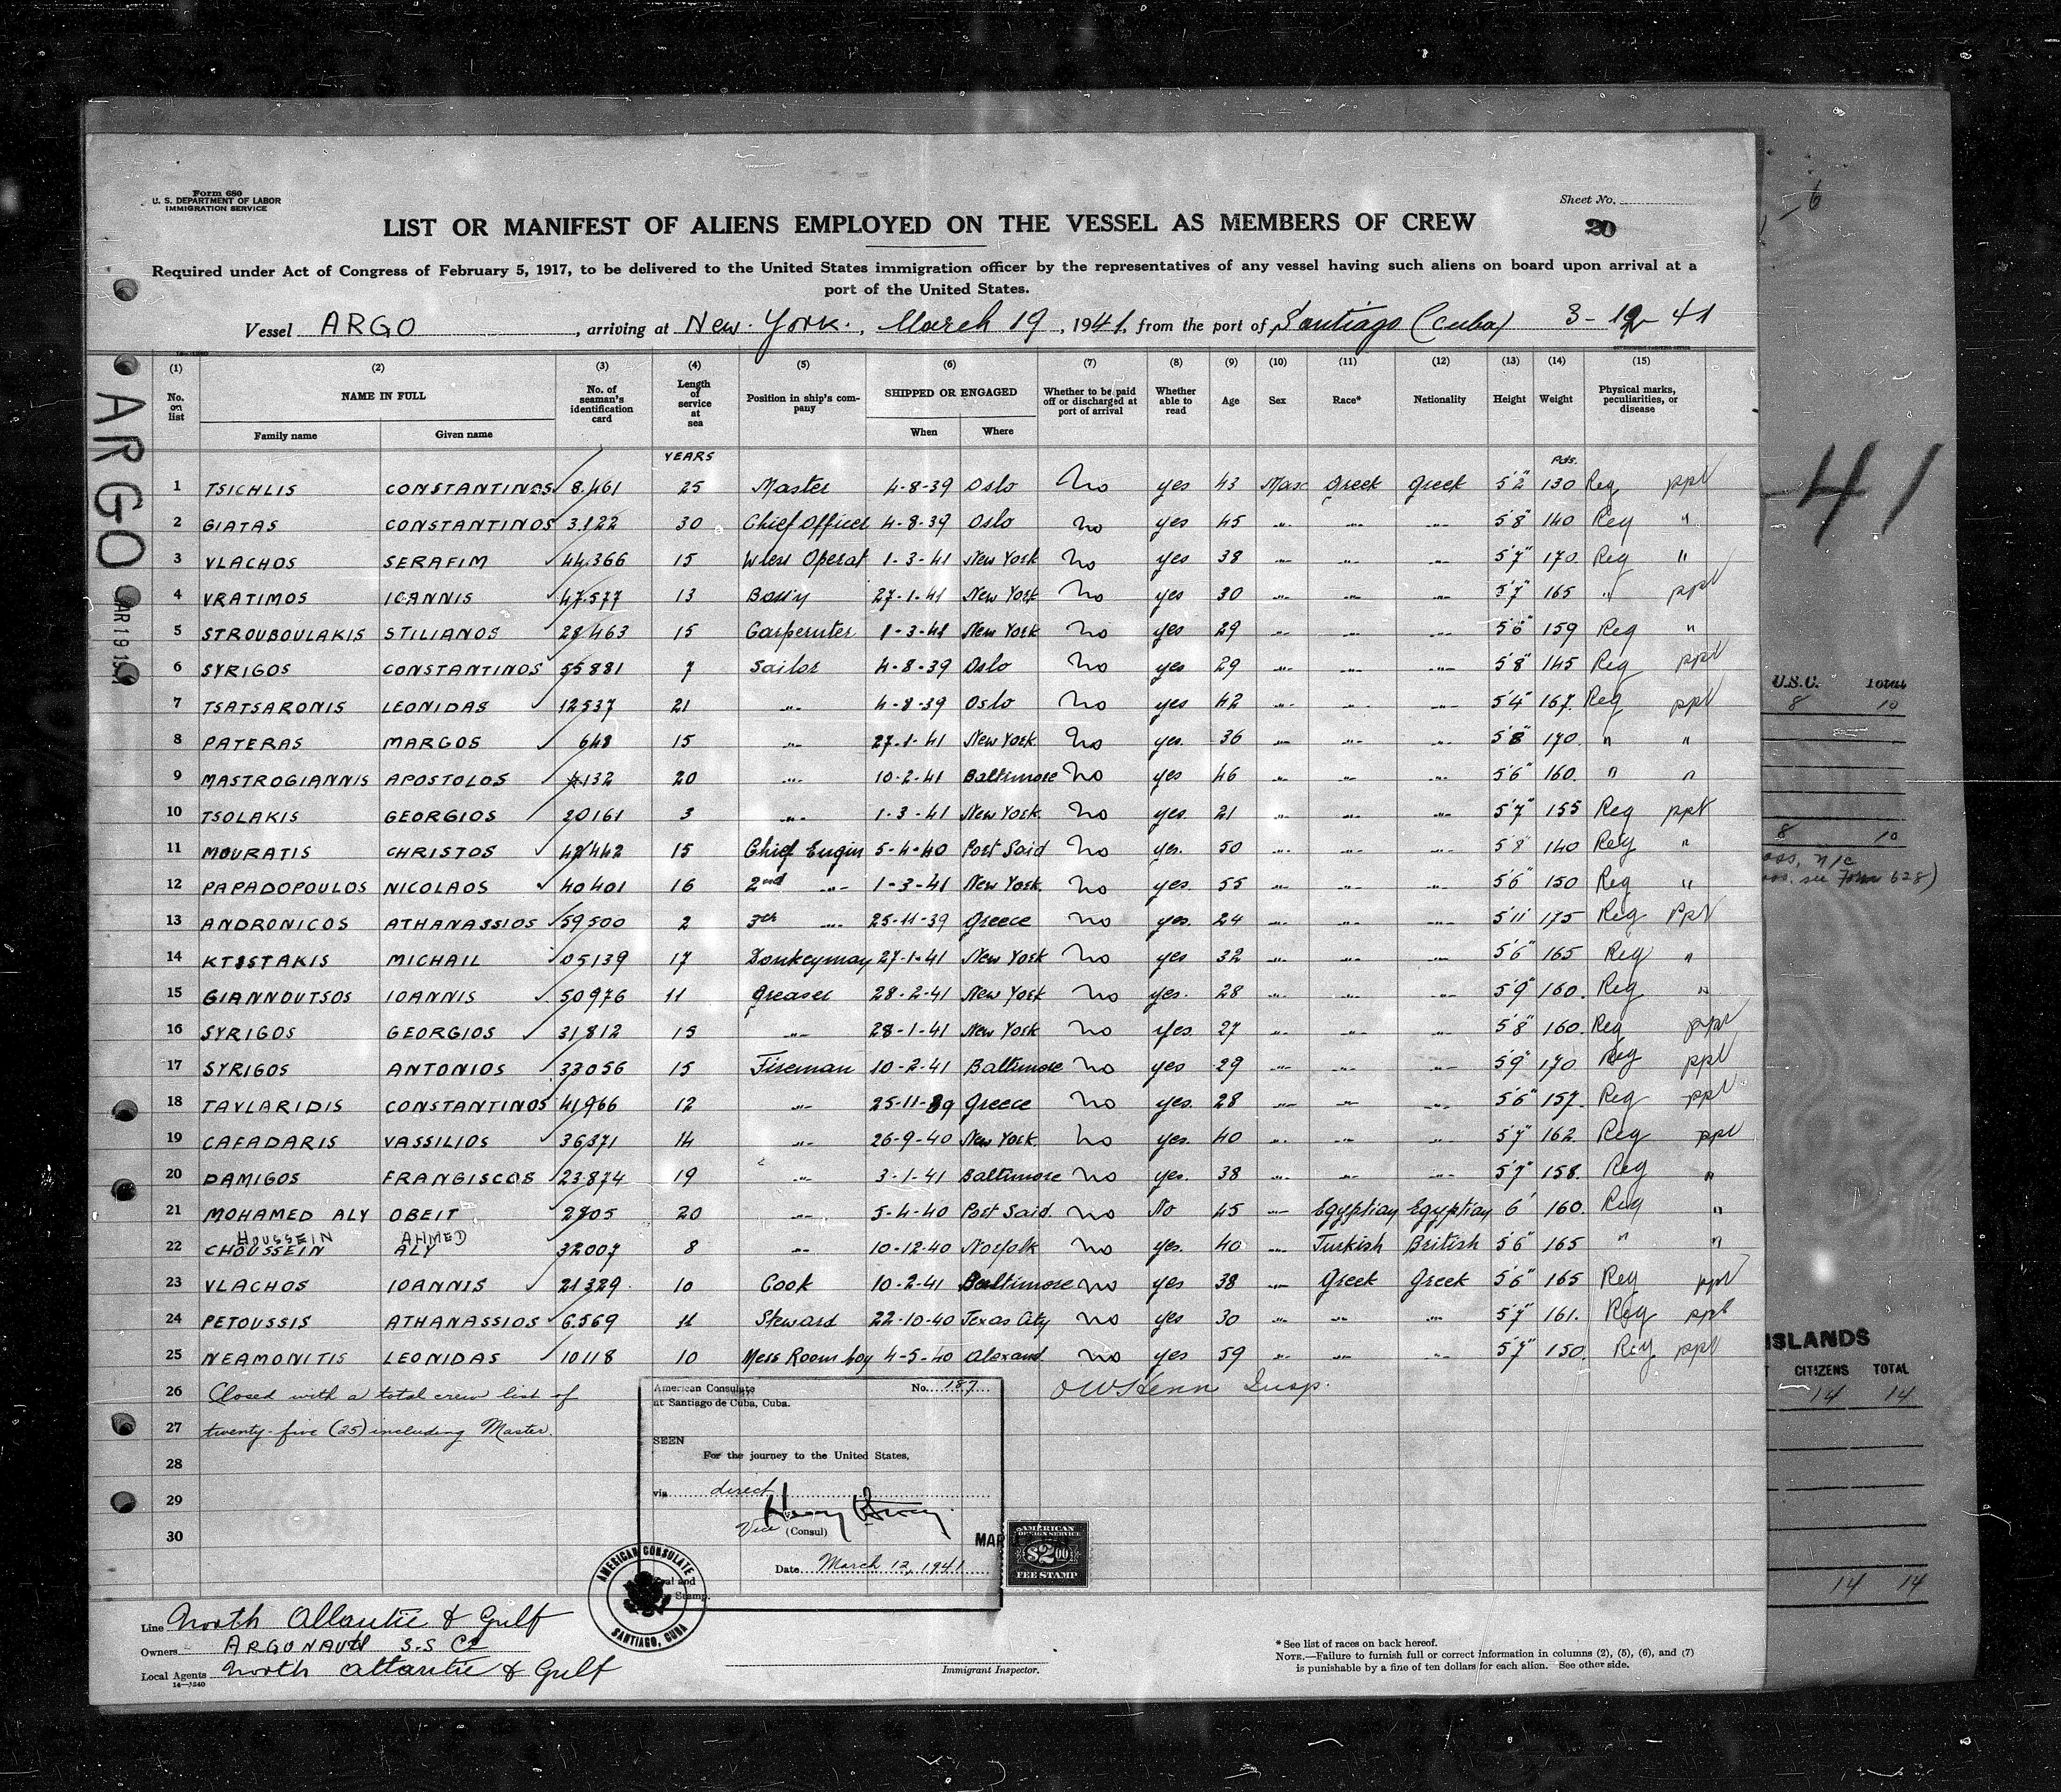 Form 680
U. S. DEPARTMENT OF LABOR
IMMIGRATION SERVICE
Sheet No.
20
LIST OR MANIFEST OF ALIENS EMPLOYED ON THE VESSEL AS MEMBERS OF CREW
Required under Act of Congress of February 5, 1917, to be delivered to the United States immigration officer by the representatives of any vessel having such aliens on board upon arrival at a
port of the United States.
Vessel ARGO, arriving at New York, March 19, 1941, from the port of Santiago (Cuba) 3-12-41
(1) (2) (3) (4) (5) (6) (7) (8) (9) (10) (11) (12) (13) (14) (15)
No. on list
NAME IN FULL
Family name Given name
No. of seaman's identification card
Length of service at sea
Position in ship's company
SHIPPED OR ENGAGED
When Where
Whether to be paid off or discharged at port of arrival
Whether able to read
Age Sex Race* Nationality Height Weight
Physical marks, peculiarities, or disease
YEARS Pds.
1 TSICHLIS CONSTANTINOS 8.461 25 Master 4-8-39 Oslo No yes 43 Masc Greek Greek 5'2" 130 Reg ppt
2 GIATAS CONSTANTINOS 3.122 30 Chief Officer 4-8-39 Oslo no yes 45 -"- -"- -"- 5'8" 140 Reg "
3 VLACHOS SERAFIM 44.366 15 Wless Operat 1-3-41 New York No yes 38 -"- -"- -"- 5'7" 170 Reg "
4 VRATIMOS IOANNIS 47.577 13 27-1-41 New York No yes 30 -"- -"- -"- 5'7" 165 " ppt
5 STROUBOULAKIS STILIANOS 28463 15 Carpernter 1-3-41 New York No yes 29 -"- -"- -"- 5'6" 159 Reg "
6 SYRIGOS CONSTANTINOS 55881 7 Sailor 4-8-39 Oslo No yes 29 -"- -"- -"- 5'8" 145 Reg ppt
7 TSATSARONIS LEONIDAS 12537 21 -"- 4-8-39 Oslo No yes 42 -"- -"- -"- 5'4" 167 Reg ppt
8 PATERAS MARGOS 648 15 -"- 27-1-41 New York No yes. 36 -"- -"- -"- 5'8" 170 " "
9 MASTROGIANNIS APOSTOLOS 4132 20 -"- 10-2-41 Baltimore No yes 46 -"- -"- -"- 5'6" 160 " "
10 TSOLAKIS GEORGIOS 20161 3 -"- 1-3-41 New York No yes. 21 -"- -"- -"- 5'7" 155 Reg ppt
11 MOURATIS CHRISTOS 42442 15 Chief Engin 5-4-40 Port Said No yes. 50 -"- -"- -"- 5'8" 140 Reg "
12 PAPADOPOULOS NICOLAOS 40401 16 2nd -"- 1-3-41 New York No yes. 55 -"- -"- -"- 5'6" 150 Reg "
13 ANDRONICOS ATHANASSIOS 59500 2 3th -"- 25-11-39 Greece No yes. 24 -"- -"- -"- 5'11" 175 Reg ppt
14 KTISTAKIS MICHAIL 05139 17 Donkeyman 27-1-41 New York No yes 32 -"- -"- -"- 5'6" 165 Reg "
15 GIANNOUTSOS IOANNIS 50976 11 Greaser 28-2-41 New York No yes. 28 -"- -"- -"- 5'9" 160 Reg "
16 SYRIGOS GEORGIOS 31812 15 -"- 28-1-41 New York No yes 27 -"- -"- -"- 5'8" 160 Reg ppt
17 SYRIGOS ANTONIOS 33056 15 Fireman 10-2-41 Baltimore no yes 29 -"- -"- -"- 5'9" 170 Reg ppt
18 TAVLARIDIS CONSTANTINOS 41966 12 -"- 25-11-39 Greece No yes. 28 -"- -"- -"- 5'6" 157 Reg ppt
19 CAFADARIS VASSILIOS 36371 14 -"- 26-9-40 New York No yes. 40 -"- -"- -"- 5'7" 162 Reg ppt
20 DAMIGOS FRANGISCOS 23.874 19 -"- 3-1-41 Baltimore no yes. 38 -"- -"- -"- 5'7" 158 Reg "
21 MOHAMED ALY OBEIT 2705 20 -"- 5-4-40 Port Said No No 45 -"- Egyptian Egyptian 6' 160 Reg "
HOUSSEIN AHMED
22 CHOUSSEIN ALY 32007 8 -"- 10-12-40 Norfolk no yes. 40 -"- Turkish British 5'6" 165 " "
23 VLACHOS IOANNIS 21329 10 Cook 10-2-41 Baltimore no yes 38 -"- Greek Greek 5'6" 165 Reg ppt
24 PETOUSSIS ATHANASSIOS 6.569 11 Steward 22-10-40 Texas City no yes 30 -"- -"- -"- 5'7" 161 Reg ppt
25 NEAMONITIS LEONIDAS 10118 10 Mess Room boy 4-5-40 Alexand. no yes 59 -"- -"- -"- 5'7" 150 Reg ppt
26 Closed with a total crew list of
27 twenty-five (25) including Master.
28
29
30
Insp.
American Consulate No. 187
at Santiago de Cuba, Cuba.
SEEN
For the journey to the United States,
via direct
Vice (Consul)
Date March 12, 1941
Seal and
Stamp.
AMERICAN CONSULATE
SANTIAGO, CUBA
MAR
AMERICAN
FOREIGN SERVICE
$2.00
FEE STAMP
Line North Atlantic & Gulf
Owners ARGONAUT S.S Co
Local Agents North Atlantic & Gulf
14—1240
Immigrant Inspector.
* See list of races on back hereof.
NOTE.—Failure to furnish full or correct information in columns (2), (5), (6), and (7)
is punishable by a fine of ten dollars for each alien. See other side.
ARGO
MAR 19 19
6
41
U.S.C. Total
8 10
8 10
n/c
see Form 628)
ISLANDS
CITIZENS TOTAL
14 14
14 14